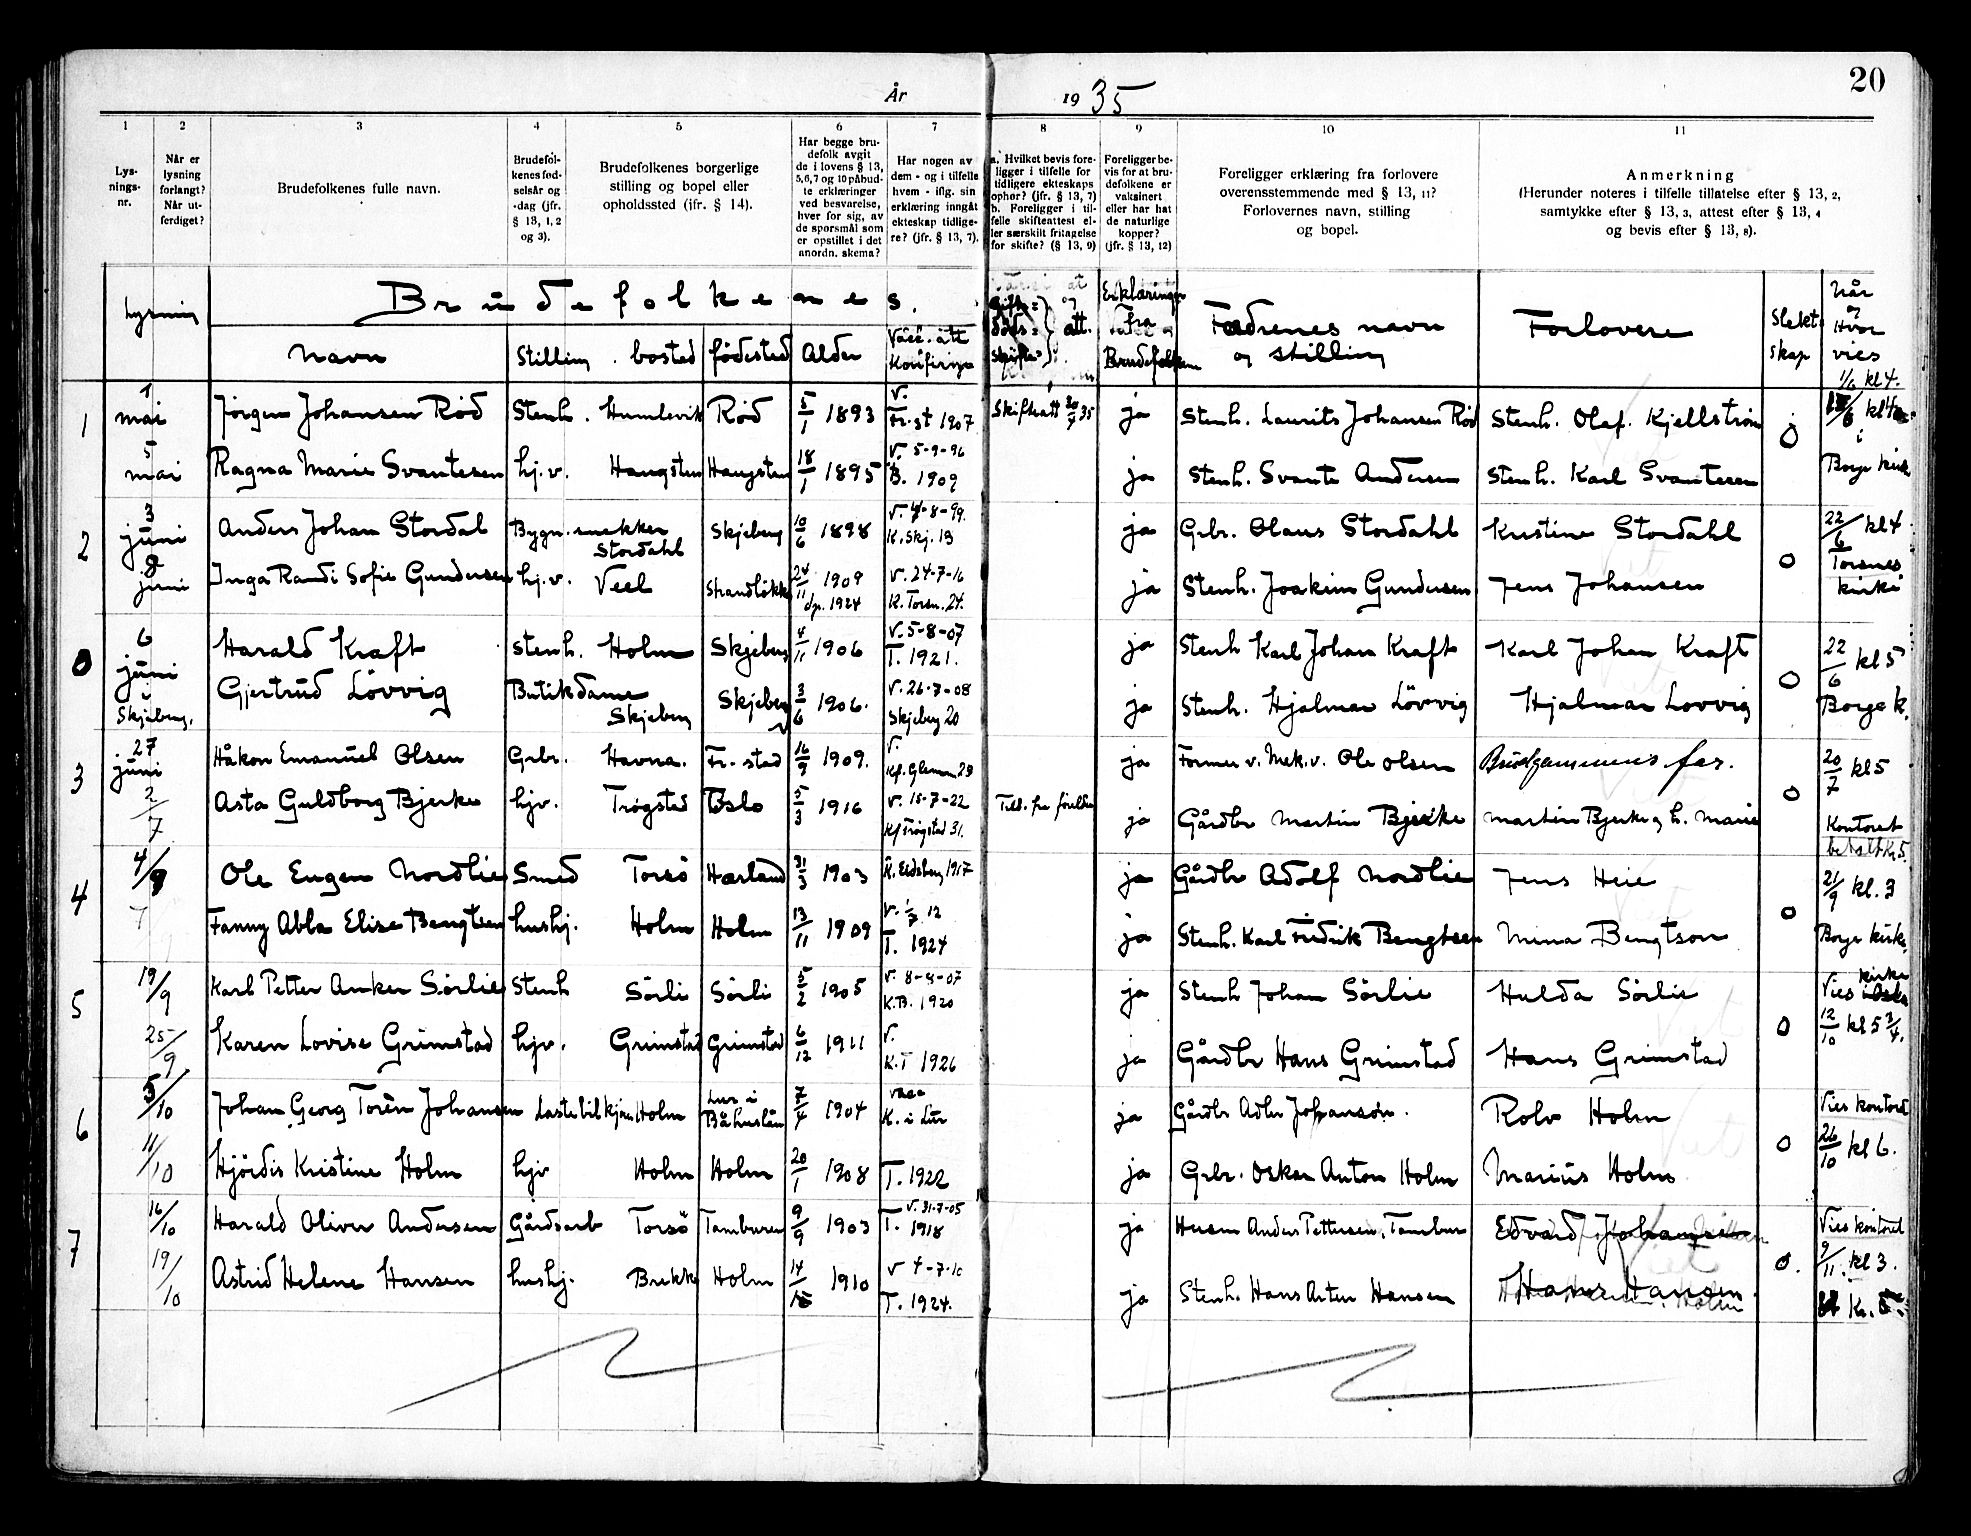 År 1935
20
1 2 3 4 5 6 7 8 9 10 11
Lys-
nings-
nr.
Når er
lysning
forlangt?
Når ut-
ferdiget?
Brudefolkenes fulle navn.
Brudefol-
kenes fød-
selsår og
-dag (jfr.
§ 13, 1, 2
og 3).
Brudefolkenes borgerlige
stilling og bopel eller
opholdssted (jfr. § 14).
Har begge bru-
defolk avgit
de i lovens § 13,
5, 6, 7 og 10 påbud-
te erklæringer
ved besvarelse,
hver for sig, av
de spørsmål som
er opstillet i det
anordn. skema?
Har nogen av
dem - og i tilfelle
hvem - iflg. sin
erklæring inngått
ekteskap tidlige-
re? (jfr. § 13, 7).
a. Hvilket bevis fore-
ligger i tilfelle for
tidligere ekteskaps
ophør? (jfr. § 13, 7)
b. Foreligger i til-
felle skifteattest el-
ler særskilt fritagelse
for skifte? (§ 13, 9)
Foreligger be-
vis for at bru-
defolkene er
vaksinert
eller har hat
de naturlige
kopper?
(jfr. § 13, 12)
Foreligger erklæring fra forlovere
overensstemmende med § 13, 11?
Forlovernes navn, stilling
og bopel.
Anmerkning
(Herunder noteres i tilfelle tillatelse efter § 13, 2,
samtykke efter § 13, 3, attest efter § 13, 4
og bevis efter § 13, 8).
lysning
Brudefolkenes.
navn Stilling . bosted fødested Alder Vacc. att Konfirmas
Gifte= Døds= Skifte= og att.
Erklæringer fra Brudefolkene
Fædrenes navn
og stilling
Forlovere
Slekt
skap
Når
og
Hvor
vies
1 1 mai Jørgen Johansen Rød Stenh. Humlevik Rød 5/1 1893 V. Fr.st 1907 Skifteatt 30/4 35 ja Stenh. Laurits Johansen Rød Stenh. Olaf. Kjellstrøm 1/6 kl 4.
5 mai Ragna Marie Svantesen hj.v. Haugsten Haugsten 18/1 1895 V. 5-9-96 B. 1909 ja Stenh. Svante Andersen Stenh. Karl Svantesen 0 i Borge kirk
2 3 juni Anders Johan Stordal Bygn.snekker Stordahl Skjeberg 10/6 1898 V. 4-8-99. K. Skj. 13 ja Grbr. Olaus Stordahl Kristine Stordahl 22/6 kl 4
8 juni Inga Randi Sofie Gundersen hj.v. Veel Strandløkka 24/11 1909 dp. 1924 V. 24-7-16 K. Torsn. 24. ja Stenh. Joakim Gundersen Jens Johansen 0 Torsnes kirke
0 6 juni Harald Kraft Stenh. Holm Skjeberg 4/11 1906 V. 5-8-07 T. 1921. ja Stenh Karl Johan Kraft Karl Johan Kraft 22/6 kl 5
i Skjeberg. Gjertrud Lövvig Butikdame Skjeberg Skjeberg 3/6 1906. V. 26-7-08 Skjeberg 20 ja Stenh. Hjalmar Lövvig Hjalmar Lovvig 0 Borge k.
3 27 juni Håkon Emanuel Olsen Grbr. Havna. Fr.stad 16/9 1909. V. Kf. Glemm 23 ja Former v. Mek.v. Ole Olsen Brudgommens far. 20/7 kl 5
2/7 Asta Guldborg Bjerke hjv. Trøgstad Oslo 5/3 1916 V. 15-7-22 Kf Trøgstad 31. Till. fra foreldre ja Gårdbr Martin Bjerke Martin Bjerke og h. Marie 0 Kontoret betalt Kr 5.
4 4/9 Ole Eugen Nordlie Smed Torsø Hærland 31/3 1903 K. Eidsberg 1917 ja Gårdbr Adolf Nordlie Jens Heie 21/9 kl. 3
7 Fanny Abla Elise Bengtsen hushj. Holm Holm 13/11 1909 V. 1/7 12 T. 1924 ja Stenh. Karl Fredrik Bengtsen Mina Bengtson 0 Borge kirke.
5 19/9 Karl Petter Anker Sörlie Stenh Sörli Sörli 5/2 1905 V. 8-8-07 K.B. 1920 ja Stenh Johan Sörlie Hulda Sörlie Vies kirke
25/9 Karen Lovise Grimstad hjv. Grimstad Grimstad 6/12 1911 V. K.T 1926 ja Gårdbr Hans Grimstad Hans Grimstad 0 12/10 kl 5 3/4.
6 5/10 Johan Georg Torén Johansen Lastebilkjører Holm Lur i Båhuslän 7/4 1904 vacc K. i Lur ja Gårdbr Adler Johanson. Rolv Holm Vies kontoret
11/10 Hjördis Kristine Holm hjv Holm Holm 20/1 1908 T. 1922 ja Grbr. Oskar Anton Holm Marius Holm 0 26/10 kl 6.
7 16/10 Harald Oliver Andersen Gårdsarb Torsö Tamburen 9/9 1903 V. 31-7-05 T. 1918 ja Husm Anders Pettersen, Tambur Edvard Johansen Vies kontoret
19/10 Astrid Helene Hansen hushj. Brekke Holm 14/12 1910 V 4-7-10 T. 1924. ja Stenh. Hans Arten Hansen Hans Hansen. Holm 0. 9/11. kl 3. Kr. 5